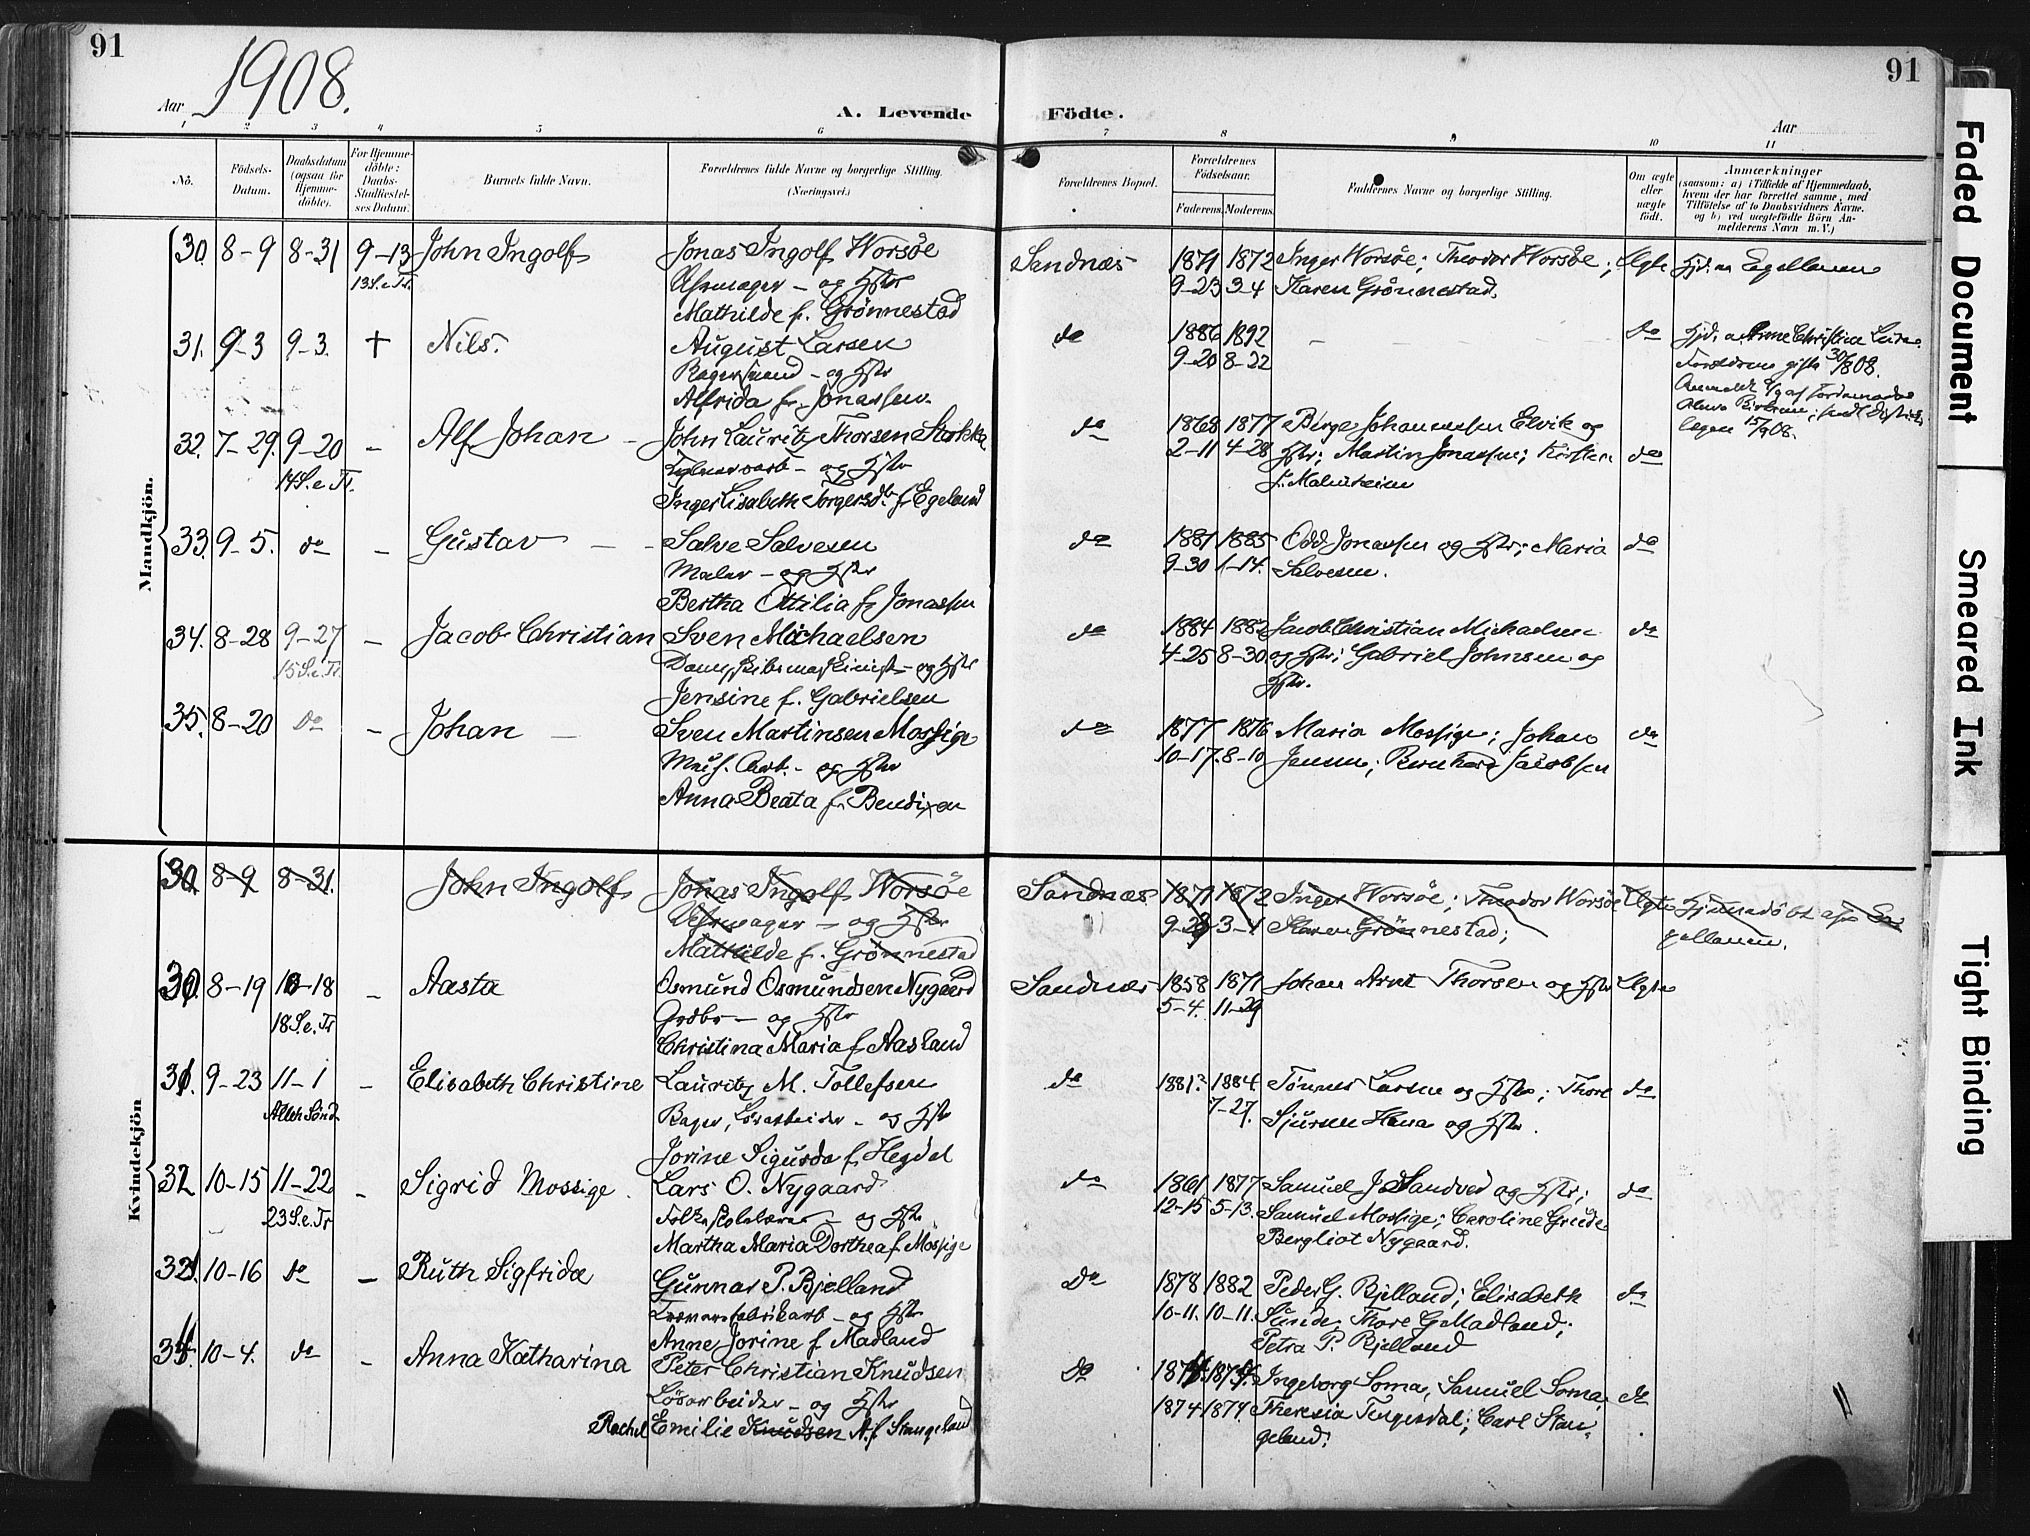 91
91
Aar 1908.
A. Levende
Födte.
Aar
1
2
3
4
5
6
7
8
9
10
11
No.
Födsels-
Datum.
Daabsdatum
(ogsaa for
Hjemme-
döbte).
For Hjemme-
döbte:
Daabs-
Stadfæstel-
ses Datum.
Barnets fulde Navn.
Forældrenes fulde Navne og borgerlige Stilling.
(Næringsvei.)
Forældrenes Bopæl.
Forældrenes
Födselsaar.
Faderens.
Moderens.
Faddernes Navne og borgerlige Stilling.
Om ægte
eller
uægte
födt.
Anmærkninger
(saasom: a) i Tilfælde af Hjemmedaab,
hvem der har forrettet samme, med
Tilföielse af to Daabsvidners Navne.
og b) ved uægtefödte Börn An-
melderens Navn m.V.)
Mandkjön.
30. 8-9 8-31 9-13 John Ingolf Jonas Ingolf Worsøe Sandnæs 1871 1872 Inger Worsøe; Theodor Worsøe; Ægte
13 S. e. Tr. og Hstr 9-23 3-4 Karen Grönnestad.
Mathilde f. Grönnestad
31. 9-3 9-3. † Nils. August Larsen do 1886 1892 do
og Hstr 9-20 8-22
Alfrida f. Jonassen.
32. 7-29. 9-20 - Alf Johan - John Lauritz Thorsen Stokke do 1868 1877 Børge Johannessen Elvik og do
14 S. e. Tr. og Hstr 2-11 4-28 Hstr; Martin Jonassen;
Inger Lisabeth Torgersdr. f. Egeland
33. 9-5. do - Gustav Salve Salvesen do 1881 1885 Odd Jonassen og Hstr; Maria do
Maler - og Hstr 9-30 1-14. Salvesen.
Bertha Ottilia f. Jonassen
34. 8-28 9-27 - Jacob Christian Sven Michaelsen do 1884 1882 Jacob Christian Michaelsen do
15 S. e. Tr. Dampskibsmaskinist - og Hstr 4-25 8-30 og Hstr; Gabriel Johnsen og
Jensine f. Gabrielsen Hstr.
35. 8-20 do - Johan - Sven Martinsen Mossige do 1877 1876 Maria Mossige; Johan do
Arb. - og Hstr 10-17. 8-10 Jensen; Bernhard Jacobsen
Anna Beata f. Bendixen
Kvindekjön
30 8-9 8-31. John Ingolf Jonas Ingolf Worsøe Sandnæs 1871 1872 Inger Worsøe; Theodor Worsøe Ægte Hjemmedöbt af
og Hstr 3-4 Karen Grönnestad;
Mathilde f. Grönnestad
30. 8-19 10-18 - Aasta Osmund Osmundsen Nygaard Sandnæs 1858 1871 Johan Arnt Thorsen og Hstr Ægte
18 S. e. Tr og Hstr 5-4. 11-29
Christina Maria f. Aasland
31. 9-23 11-1 - Elisabeth Christine Lauritz M. Tollefsen do 1881? 1884. Tønnes Larsen og Hstr; Thore do
Alleh. Sönd. Løsarbeider - og Hstr 7-27. Sjursen Hana og Hstr.
Jorine Sigurda f. Hegdal
32 10-15 11-22 - Sigrid Mossige. Lars O. Nygaard do 1861 1877 Samuel J. Sandved og Hstr; do
23 S. e. Tr Folkeskolelærer - og Hstr 12-15 5-13. Samuel Mossige; Caroline Grude
Martha Maria Dorthea f. Mossige Bergliot Nygaard.
33. 10-16 do - Ruth Sigfrida Gunnar P. Bjelland Do 1878 1882 Peder G. Bjelland; Elisabeth do
og Hstr 10-11. 10-11. Sunde, Thore G. Madland;
Anne Jorine f. Madland Petra P. Bjelland
34. 10-4. do - Anna Katharina Peter Christian Knudsen Do Ingeborg Soma, Samuel Soma, do
Løsarbeider - og Hstr 1874 1874. Theresia Tengesdal; Carl Stan-
Rachel Emilie Knudsen f. Stangeland geland.
Faded Document
Smeared Ink
Tight Binding